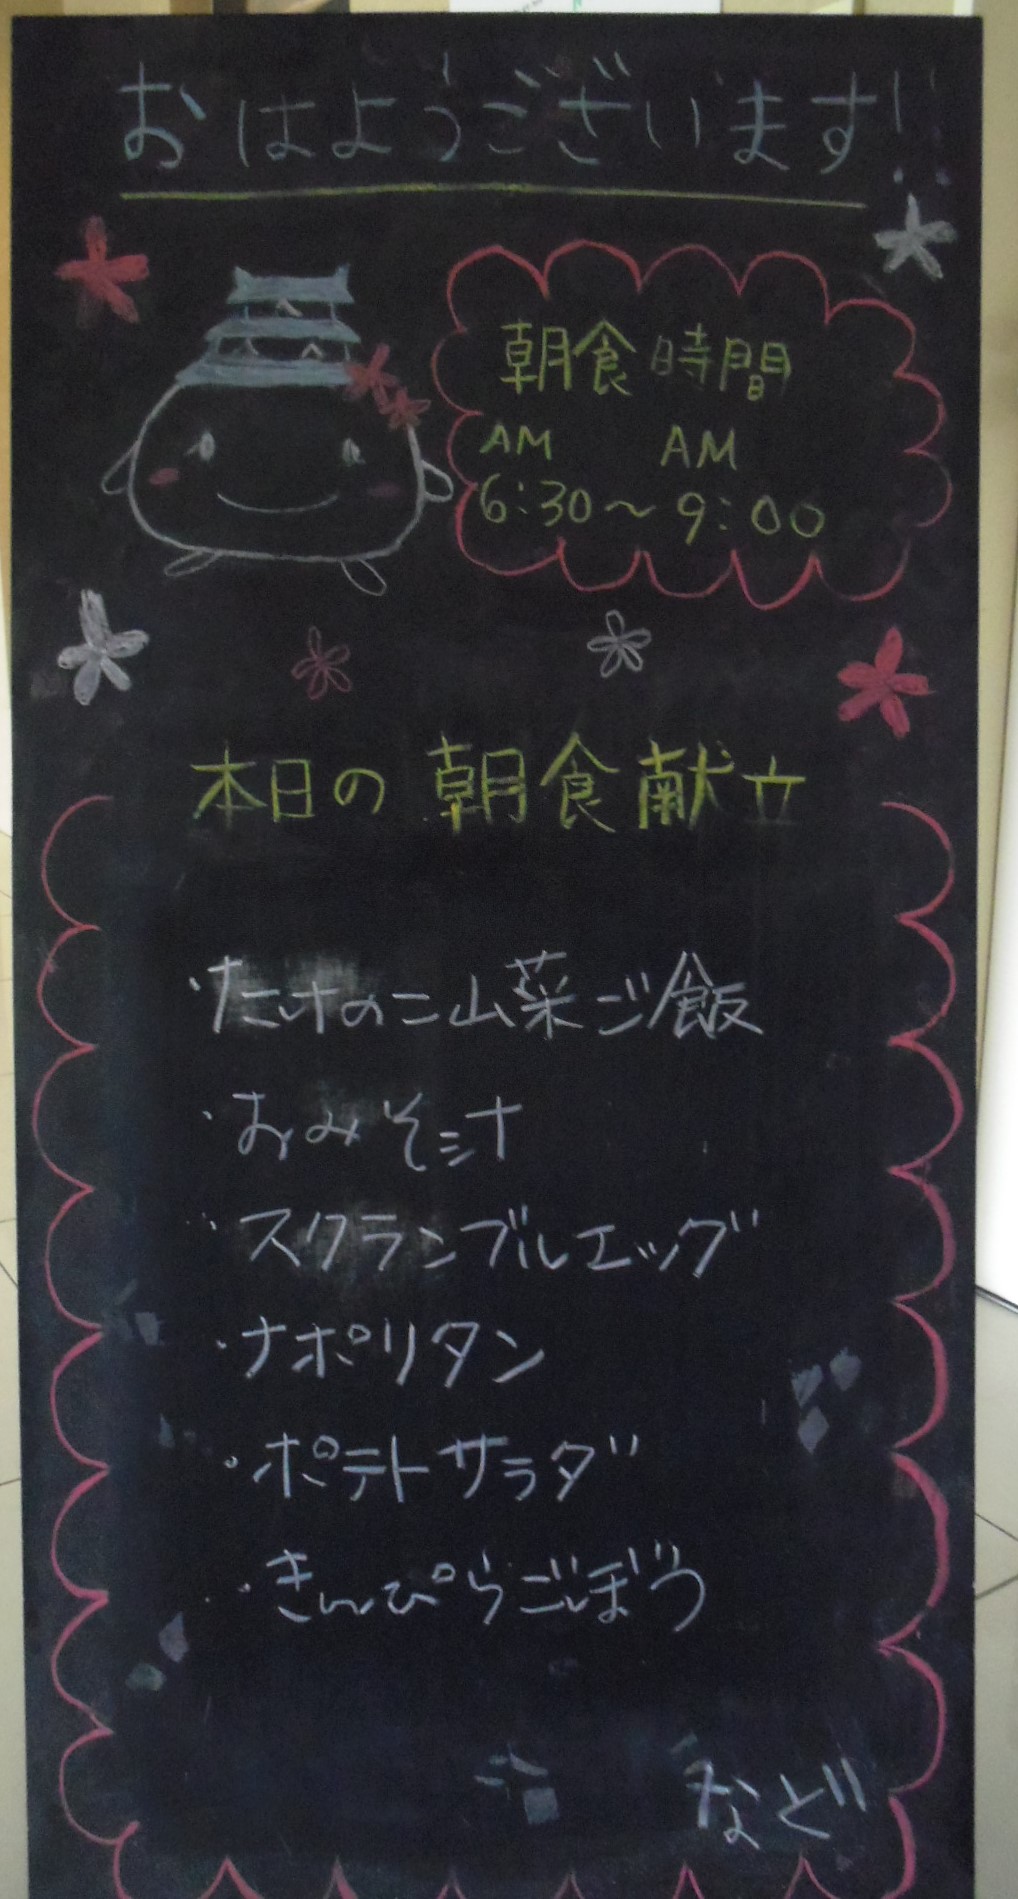 おはようございます!!
朝食時間
AM AM
6:30〜9:00
本日の朝食献立
・たけのこ山菜ご飯
・おみそ汁
・スクランブルエッグ
・ナポリタン
・ポテトサラダ
・きんぴらごぼう
など